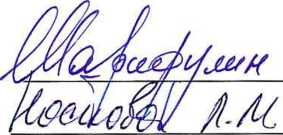 Шарифулин
Носкова Л.М